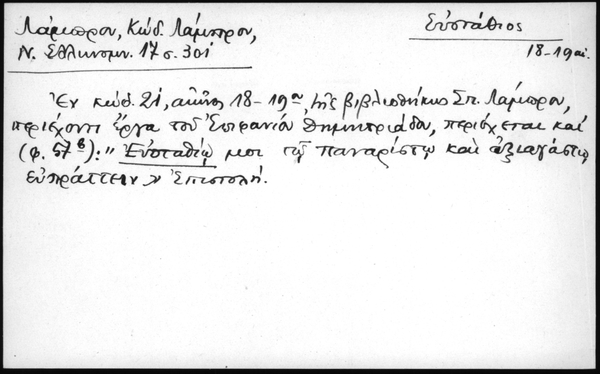 Λάμπρου, Κώδ. Λάμπρου,
Ν. Ἑλληνομν. 17 σ. 301
Εὐστάθιος
18-19 αἰ.
Ἐν κώδ. 21, αἰῶνος 18-19ου, τῆς βιβλιοθήκης Σπ. Λάμπρου,
περιέχοντι ἔργα τοῦ Ἐπιφανίου Δημητριάδου, περιέχεται καὶ
(φ. 57β): "Εὐσταθίῳ μοι τῷ παναρίστῳ καὶ ἀξιαγάστῳ
εὖ πράττειν" Ἐπιστολή.